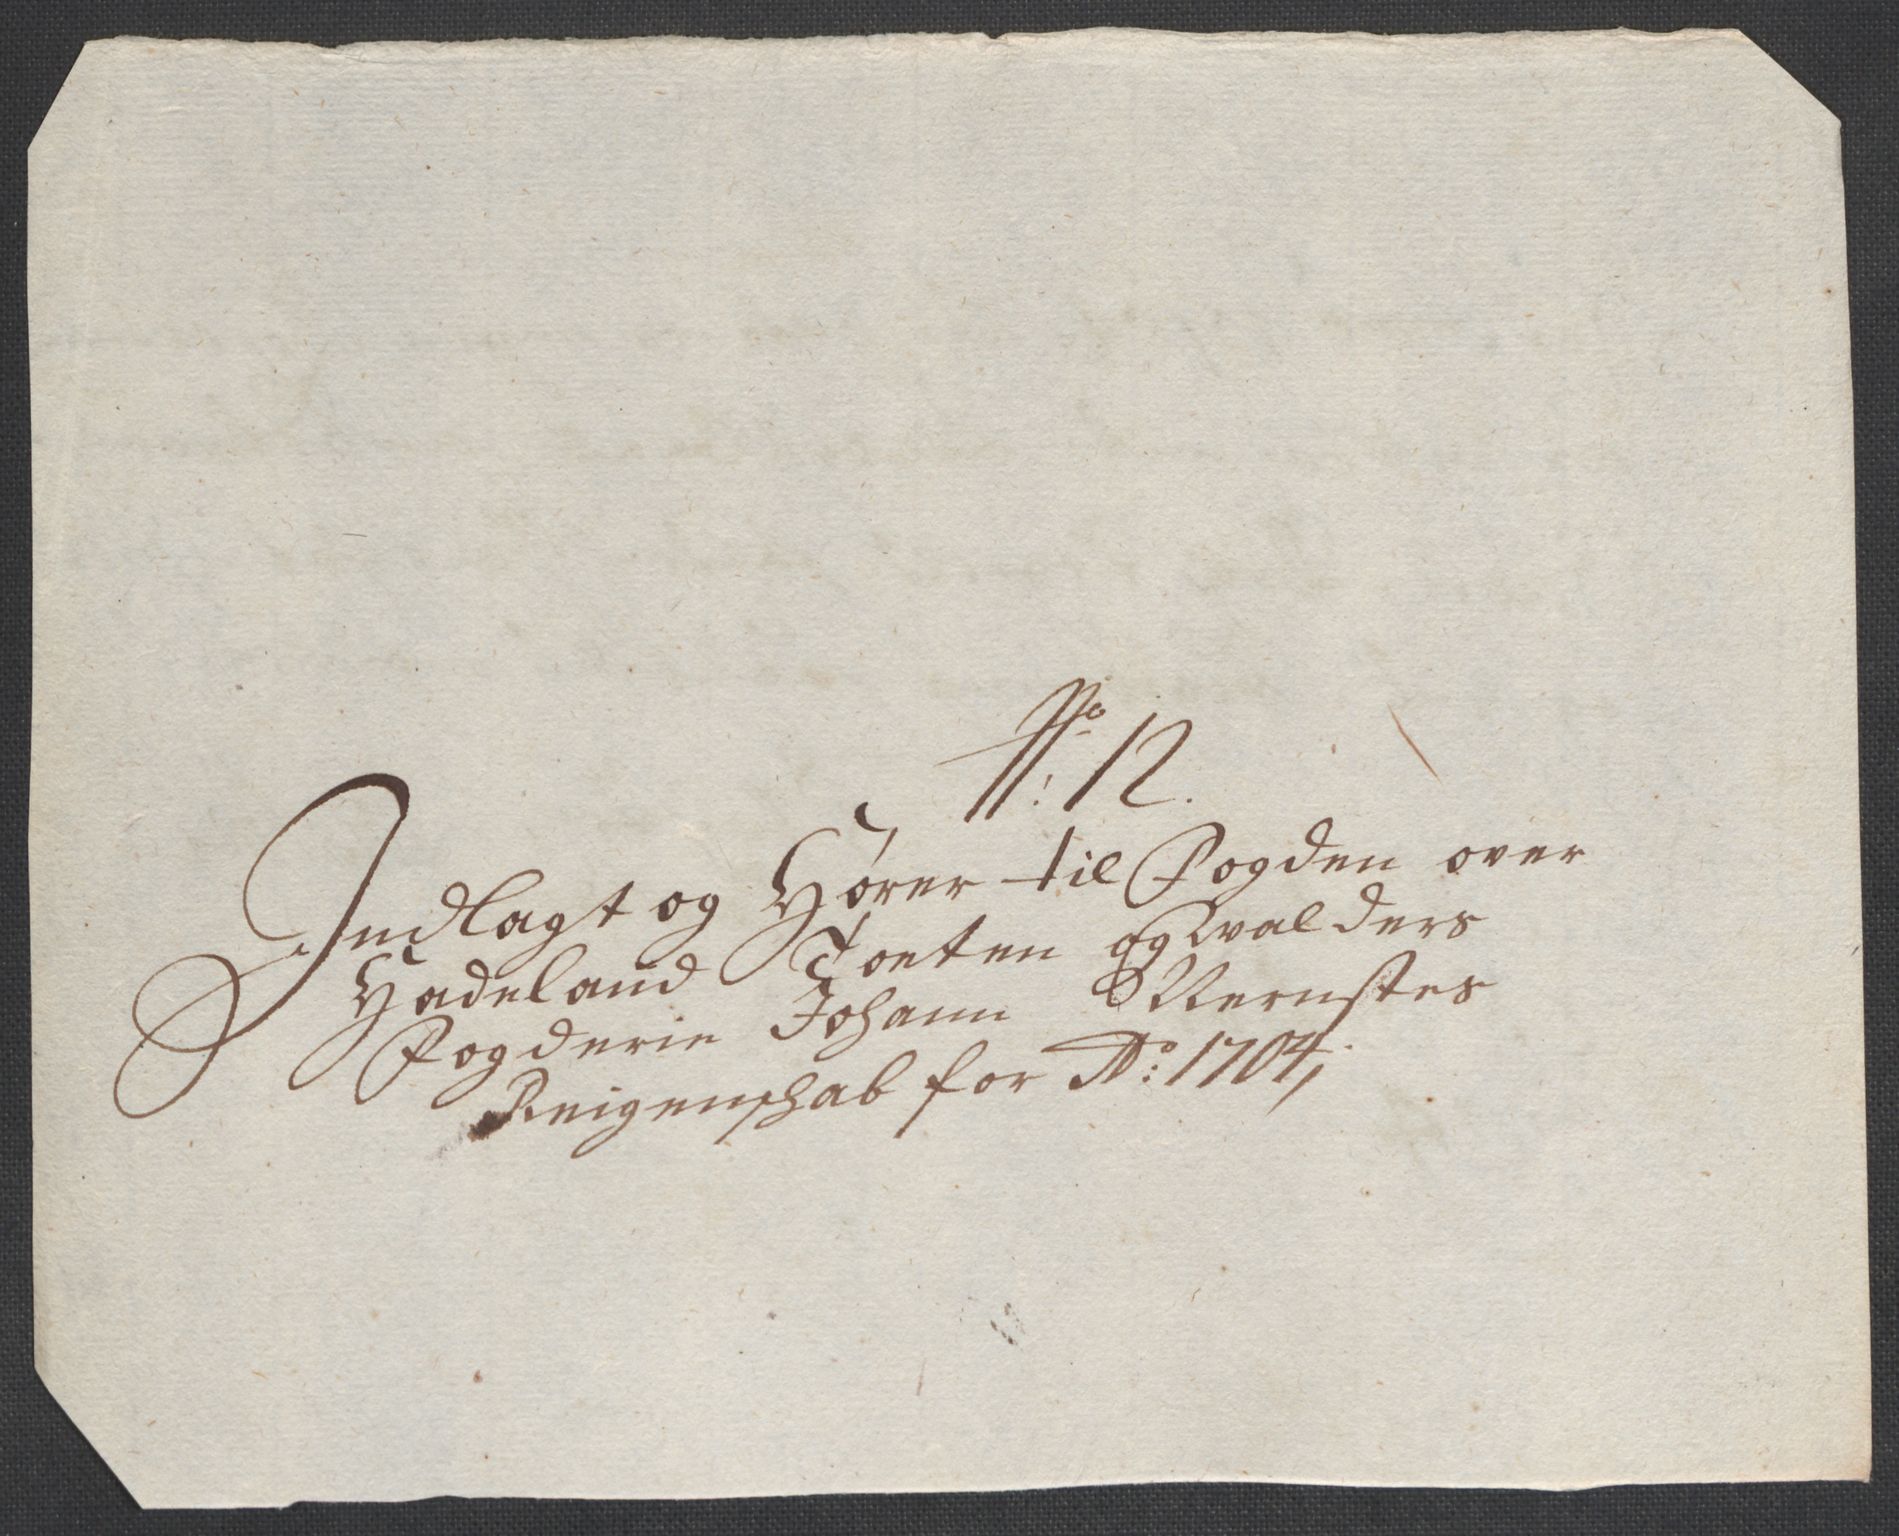 No: 12.
Indlagt og Hörer til Fogden over
Hadeland Toeten og Walders
Fogderie Johann Wernstes
Reigenschab for Ao: 1704,